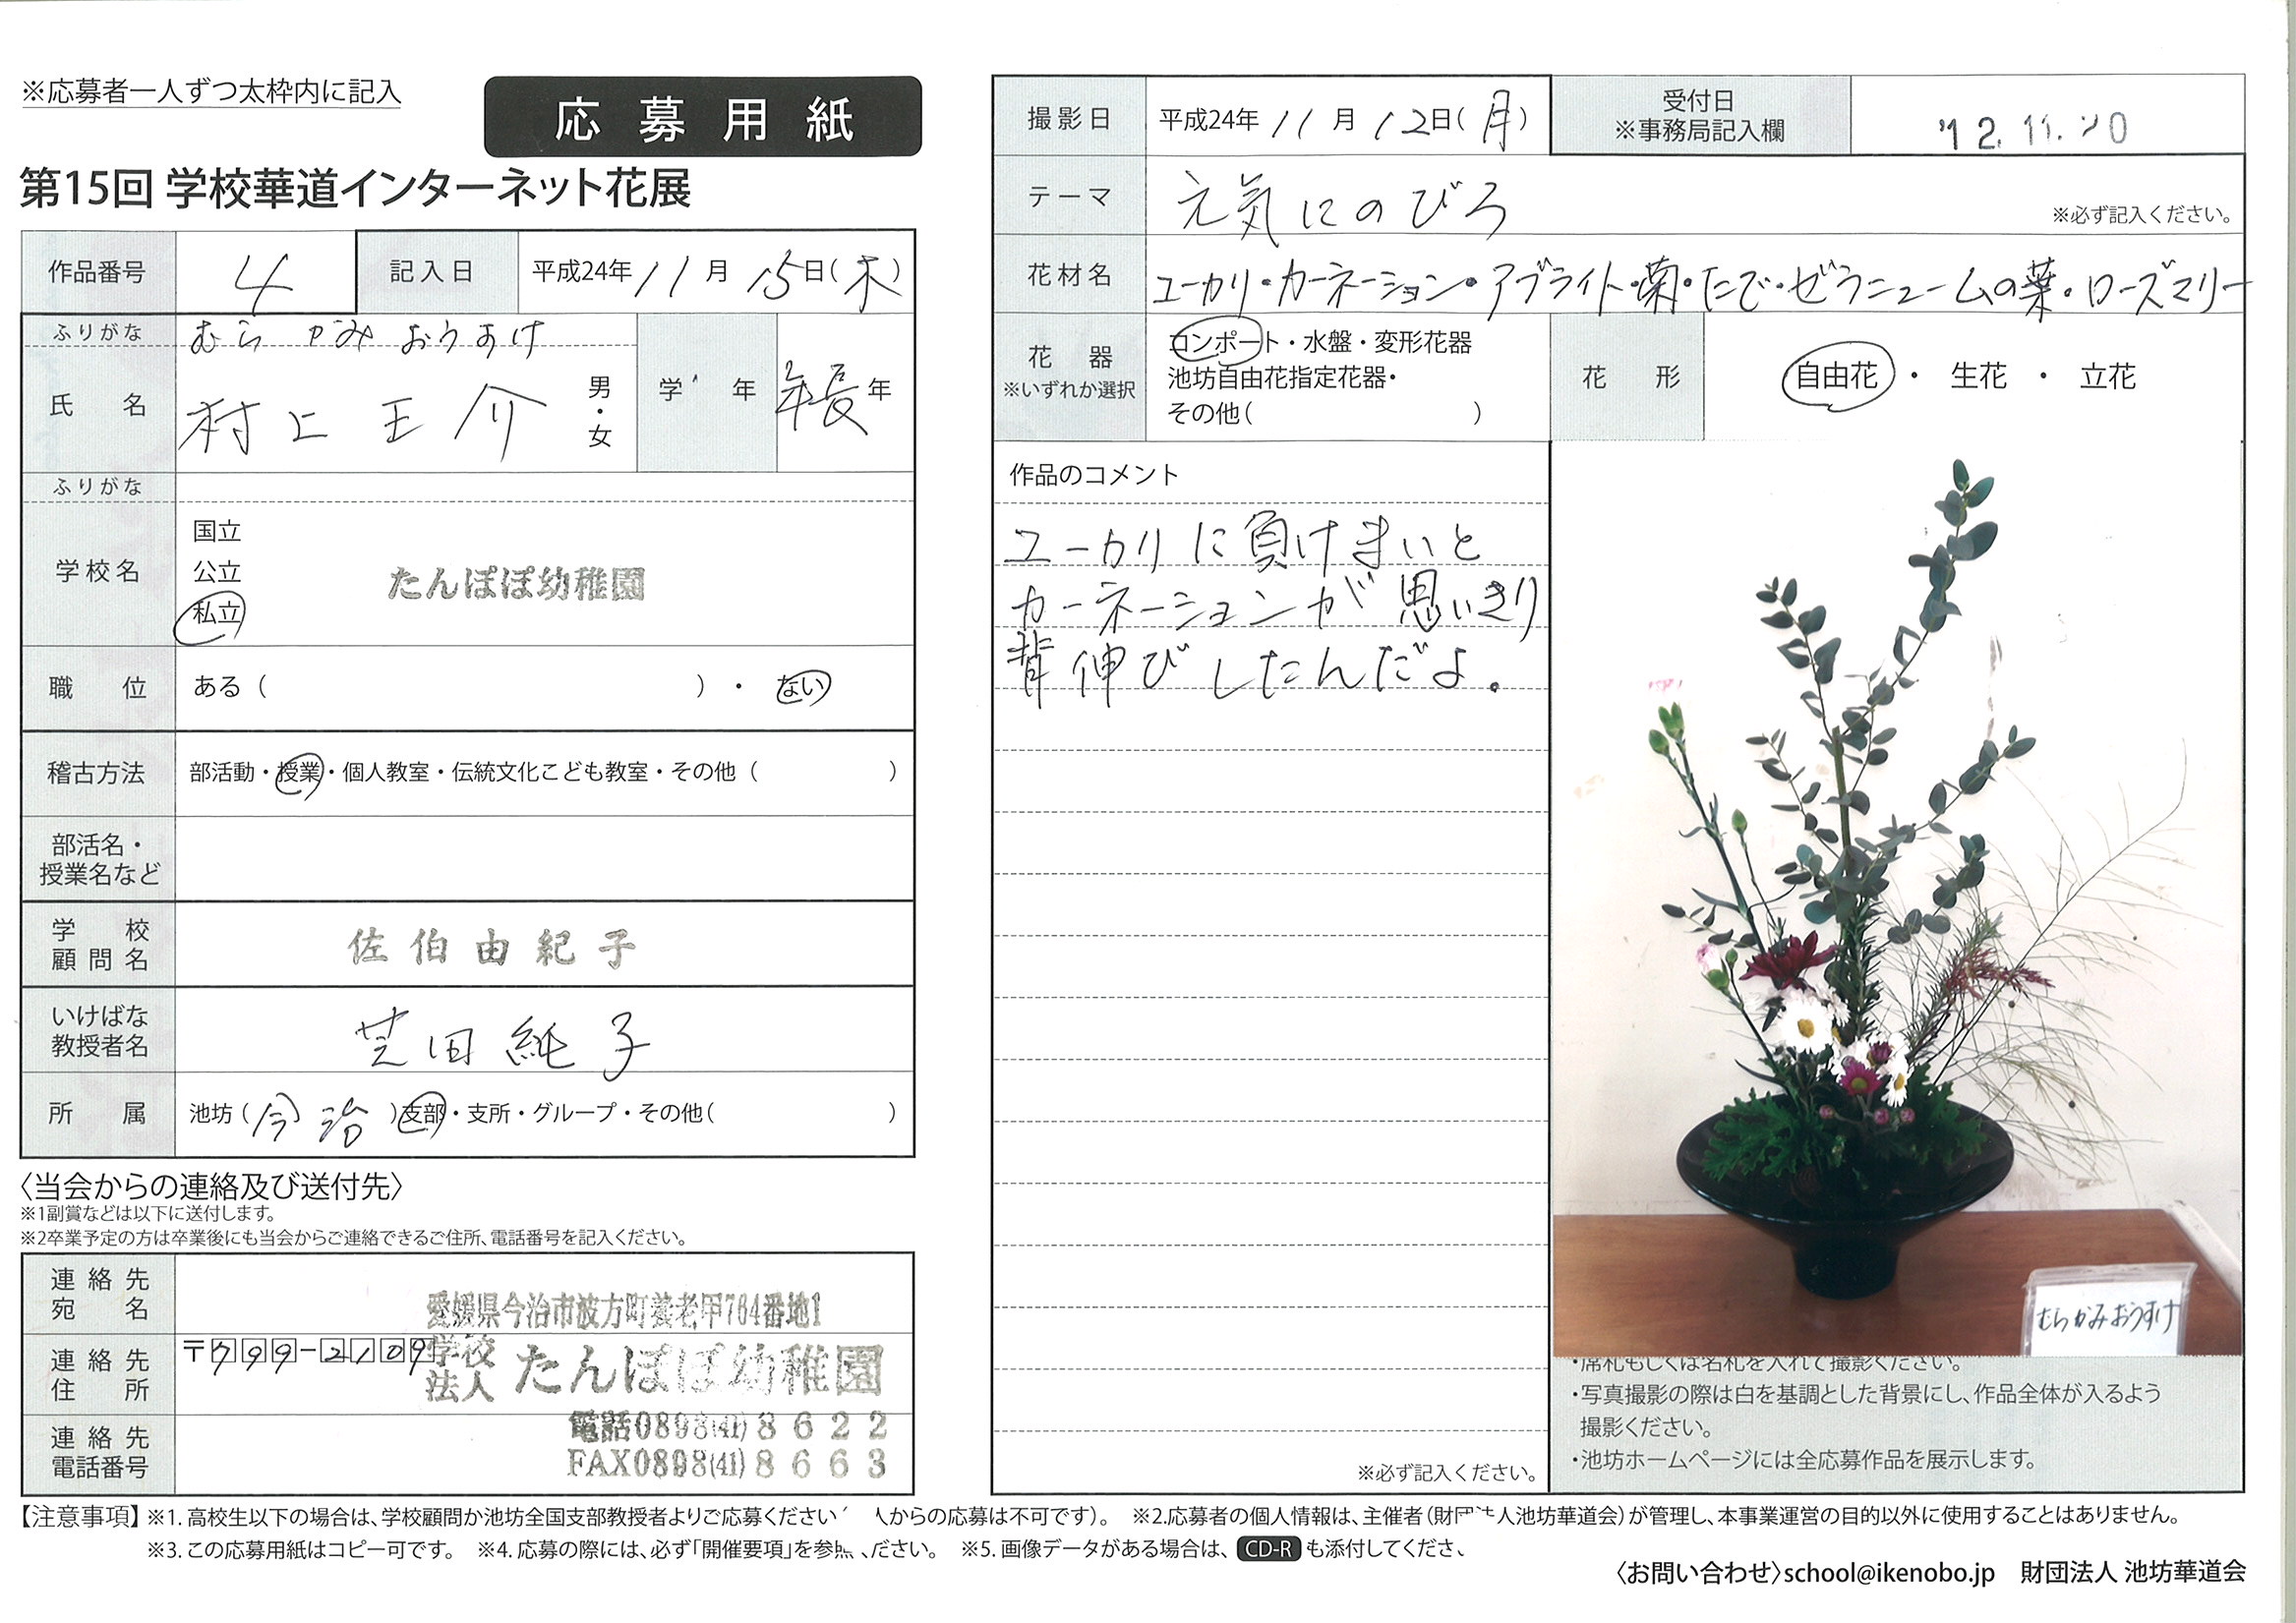 ※応募者一人ずつ太枠内に記入
応募用紙
第15回 学校華道インターネット花展
作品番号 4 記入日 平成24年11月15日(木)
ふりがな むらかみ おうすけ
氏名 村上 王介 男・女 学年 年長年
ふりがな
学校名 国立
公立
私立
たんぽぽ幼稚園
職位 ある ( ) ・ ない
稽古方法 部活動・授業・個人教室・伝統文化こども教室・その他 ( )
部活名・
授業名など
学校
顧問名 佐伯由紀子
いけばな
教授者名 芝田純子
所属 池坊 (今治) 支部・支所・グループ・その他( )
〈当会からの連絡及び送付先〉
※1副賞などは以下に送付します。
※2卒業予定の方は卒業後にも当会からご連絡できるご住所、電話番号を記入ください。
連絡先
宛名
愛媛県今治市波方町養老甲764番地1
連絡先
住所
〒799-2109
学校
法人 たんぽぽ幼稚園
連絡先
電話番号
電話0898(41)8622
FAX0898(41)8663
撮影日 平成24年11月12日(月) 受付日
※事務局記入欄 '12.11.20
テーマ 元気にのびろ ※必ず記入ください。
花材名 ユーカリ・カーネーション・アブライト・菊・たで・ゼラニュームの葉・ローズマリー
花器
※いずれか選択
コンポート・水盤・変形花器
池坊自由花指定花器・
その他( )
花形 自由花 ・ 生花 ・ 立花
作品のコメント
ユーカリに負けまいと
カーネーションが思いきり
背伸びしたんだよ。
※必ず記入ください。
むらかみおうすけ
・席札もしくは名札を入れて撮影ください。
・写真撮影の際は白を基調とした背景にし、作品全体が入るよう
撮影ください。
・池坊ホームページには全応募作品を展示します。
【注意事項】※1. 高校生以下の場合は、学校顧問か池坊全国支部教授者よりご応募ください 人からの応募は不可です)。 ※2.応募者の個人情報は、主催者(財団法人池坊華道会)が管理し、本事業運営の目的以外に使用することはありません。
※3. この応募用紙はコピー可です。 ※4. 応募の際には、必ず「開催要項」を参照ください。 ※5. 画像データがある場合は、 CD-R も添付してくださ
〈お問い合わせ〉school@ikenobo.jp 財団法人 池坊華道会